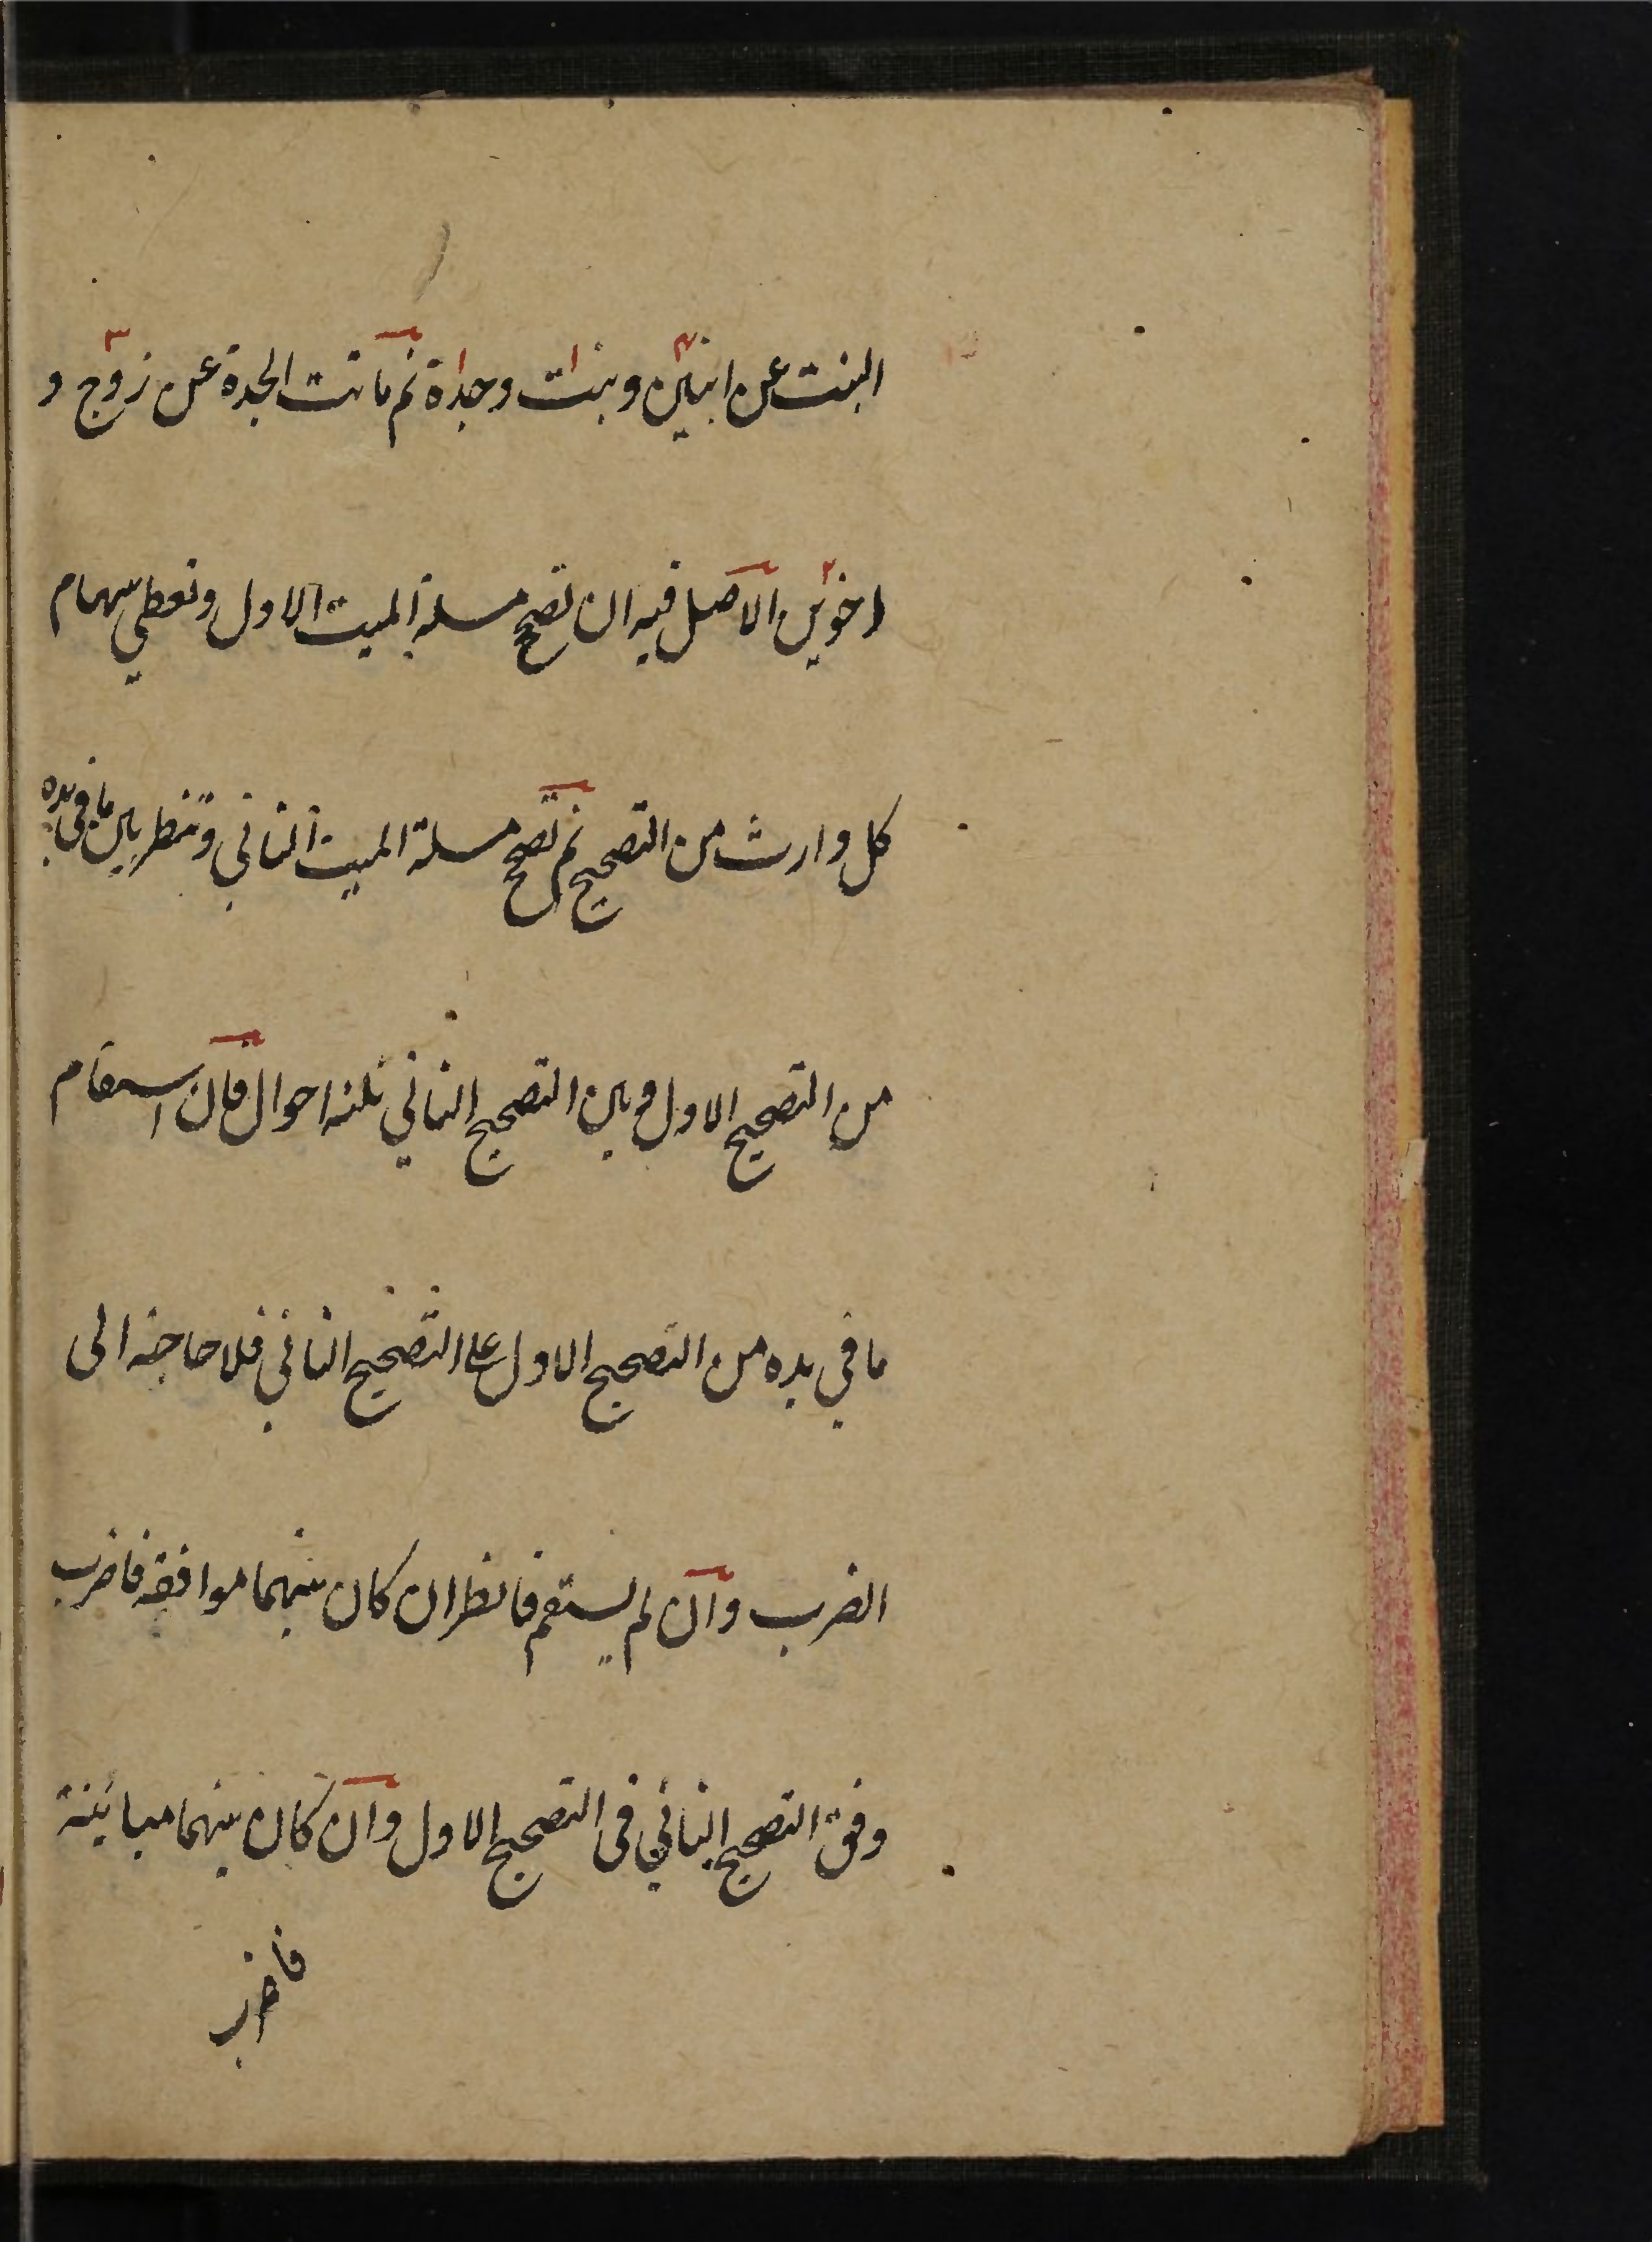 البنت عن ابنين وبنت وجدة ثم ماتت الجدة عن زوج و
اخوين الاصل فيه ان تصح مسئلة الميت الاول وتعطي سهام
كل وارث من التصحيح ثم تصح مسئلة الميت الثاني وتنظر بين ما في يده
من التصحيح الاول وبين التصحيح الثاني ثلثة احوال فان استقام
ما في يده من التصحيح الاول على التصحيح الثاني فلا حاجة الى
الضرب وان لم يستقم فانظر ان كان بينهما موافقة فاضرب
وفق التصحيح الثاني في التصحيح الاول وان كان بينهما مباينة
فاضرب